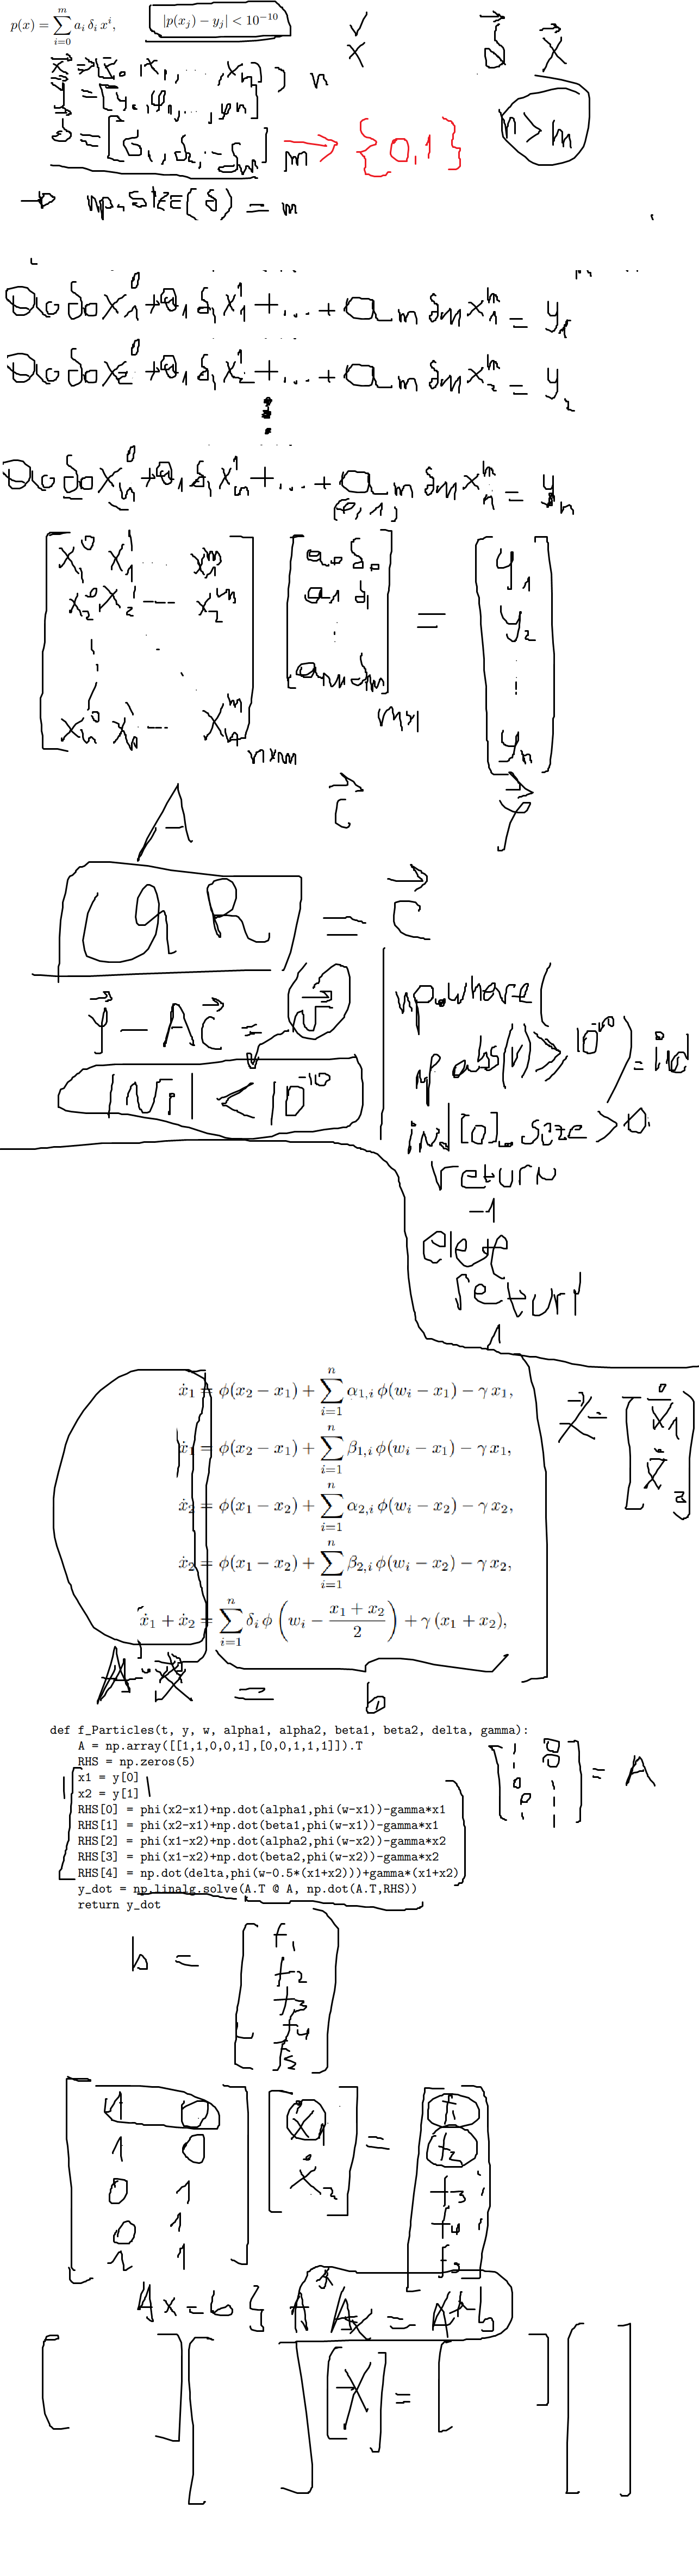 p(x) = \sum_{i=0}^{m} a_i δ_i x^i, |p(x_j) − y_j| < 10^{−10}
✓ x
δ⃗ x⃗
x⃗ => [x_0, x_1, ..., x_n] ) n
y⃗ = [y_0, y_1, ..., y_n]
δ⃗ = [δ_1, δ_2, -- δ_m] m → {0,1}
n > m
→ np.size(δ) = m
a_0 δ_0 x_1^0 + a_1 δ_1 x_1^1 + ... + a_m δ_m x_1^m = y_1
a_0 δ_0 x_2^0 + a_1 δ_1 x_2^1 + ... + a_m δ_m x_2^m = y_2
⋮
a_0 δ_0 x_n^0 + a_1 δ_1 x_n^1 + ... + a_m δ_m x_n^m = y_n
(0,1,)
x_1^0 x_1^1 ... x_1^m a_0 δ_0 y_1
x_2^0 x_2^1 --- x_2^m a_1 δ_1 = y_2
⋮ ⋱ ⋮ ⋮
x_n^0 x_n^1 --- x_n^m a_m δ_m y_n
n×m m×1
A c⃗ y⃗
QR = c⃗
y⃗ − A c⃗ = v⃗
|v_i| < 10^{-10}
np.where(
np.abs(v) ≥ 10^{-10}) = ind
ind[0].size > 0.
return
-1
else
return
1
ẋ_1 = ϕ(x_2 − x_1) + \sum_{i=1}^{n} α_{1,i} ϕ(w_i − x_1) − γ x_1,
ẋ_1 = ϕ(x_2 − x_1) + \sum_{i=1}^{n} β_{1,i} ϕ(w_i − x_1) − γ x_1,
ẋ_2 = ϕ(x_1 − x_2) + \sum_{i=1}^{n} α_{2,i} ϕ(w_i − x_2) − γ x_2,
ẋ_2 = ϕ(x_1 − x_2) + \sum_{i=1}^{n} β_{2,i} ϕ(w_i − x_2) − γ x_2,
ẋ_1 + ẋ_2 = \sum_{i=1}^{n} δ_i ϕ (w_i − \frac{x_1 + x_2}{2}) + γ (x_1 + x_2),
A · x⃗ = b
def f_Particles(t, y, w, alpha1, alpha2, beta1, beta2, delta, gamma):
A = np.array([[1,1,0,0,1],[0,0,1,1,1]]).T
RHS = np.zeros(5)
x1 = y[0]
x2 = y[1]
RHS[0] = phi(x2-x1)+np.dot(alpha1,phi(w-x1))-gamma*x1
RHS[1] = phi(x2-x1)+np.dot(beta1,phi(w-x1))-gamma*x1
RHS[2] = phi(x1-x2)+np.dot(alpha2,phi(w-x2))-gamma*x2
RHS[3] = phi(x1-x2)+np.dot(beta2,phi(w-x2))-gamma*x2
RHS[4] = np.dot(delta,phi(w-0.5*(x1+x2)))+gamma*(x1+x2)
y_dot = np.linalg.solve(A.T @ A, np.dot(A.T,RHS))
return y_dot
1 0
1 0
0 1 = A
0 1
1 1
b =
f_1
f_2
f_3
f_4
f_5
1 0 ẋ_1 f_1
1 0 = f_2
0 1 ẋ_2 f_3
0 1 f_4
1 1 f_5
Ax = b } A^* Ax = A^* b
[ ] [ ] [x] = [ ] [ ]